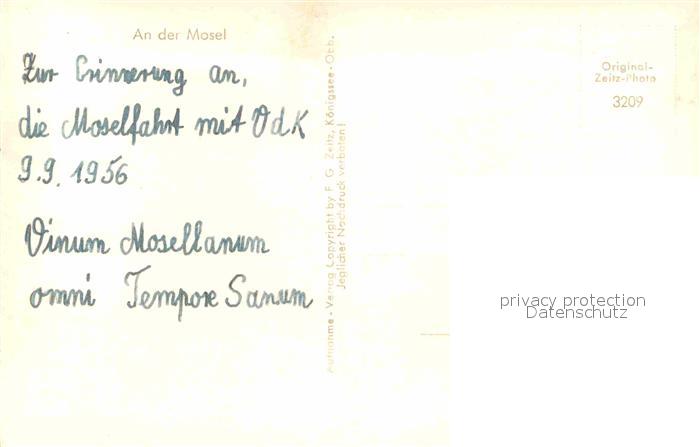 An der Mosel
Zur Erinnerung an,
die Moselfahrt mit VdK
9.9. 1956
Vinum Mosellanum
omni Tempore Sanum
Aufnahme - Verlag Copyright by F. G. Zeitz, Königssee-Obb.
Jeglicher Nachdruck verboten!
Original-
Zeitz-Photo
3209
privacy protection
Datenschutz